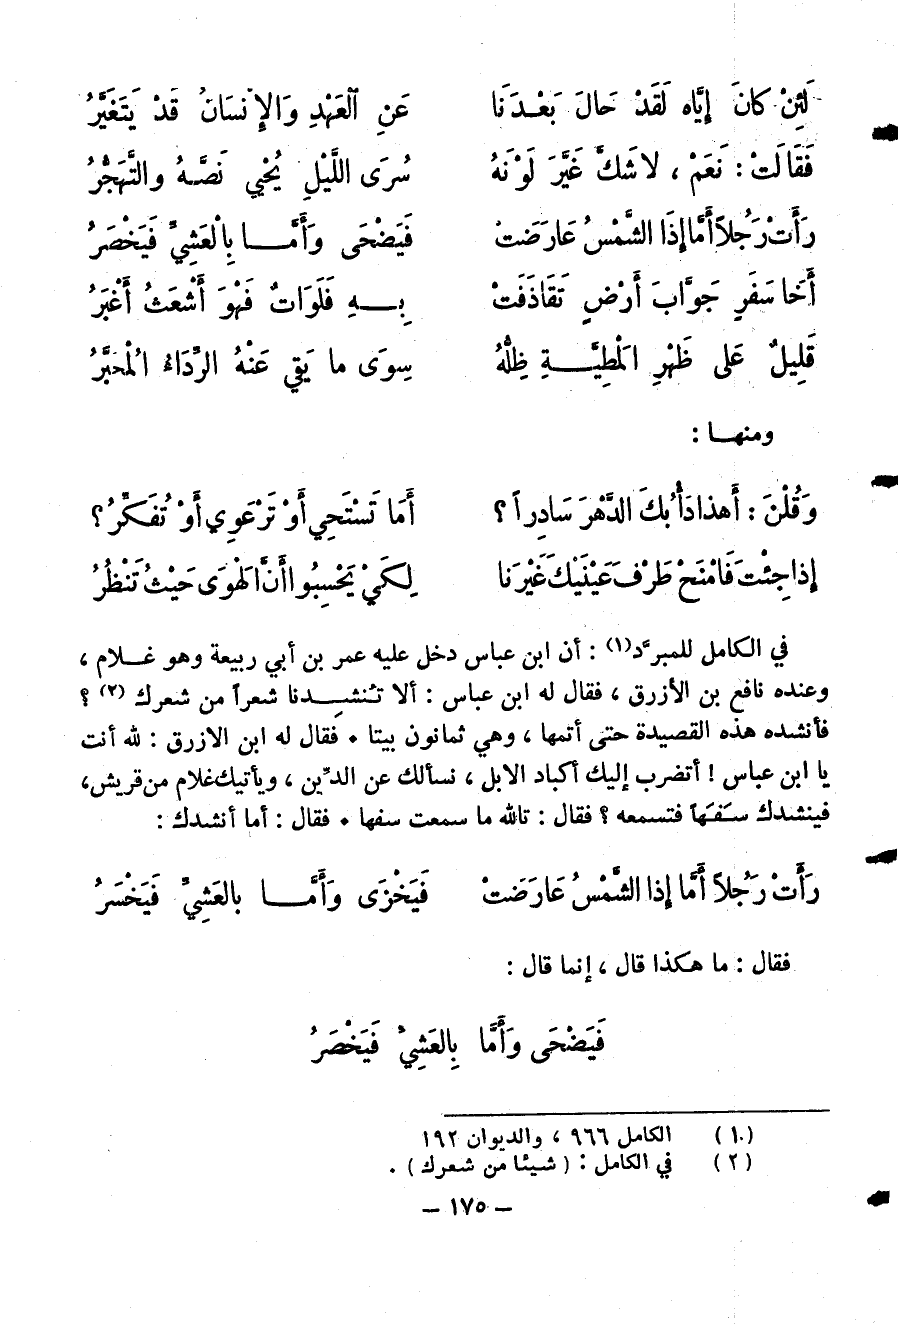 لَئِنْ كانَ إيَّاه لَقَدْ حَالَ بَعْدَنَا عَنِ الْعَهْدِ وَالإِنسَانُ قَدْ يَتَغَيَّرُ
فَقَالَتْ : نَعَمْ ، لا شَكَّ غَيَّرَ لَوْنَهُ سُرَى اللَّيْلِ يُحْيِي نَصَّهُ والتَّهَجُّرُ
رَأَتْ رَجُلاً أَمَّا إذَا الشَّمْسُ عَارَضَتْ فَيَضْحَى وَأَمَّا بِالْعَشِيِّ فَيَخْصَرُ
أَخَا سَفَرٍ جَوَّابَ أَرْضٍ تَقَاذَفَتْ بِهِ فَلَوَاتٌ فَهْوَ أَشْعَثُ أَغْبَرُ
قَلِيلٌ عَلى ظَهْرِ المَطِيَّةِ ظِلُّهُ سِوَى ما يَقِي عَنْهُ الرِّدَاءُ المُحَبَّرُ
ومنها :
وَقُلْنَ : أَهذا دَأْبُكَ الدَّهْرَ سَادِراً ؟ أَمَا تَسْتَحِي أَوْ تَرْعَوِي أَوْ تُفَكِّرُ ؟
إذا جِئْتَ فَامْنَحْ طَرْفَ عَيْنَيْكَ غَيْرَنا لِكَيْ يَحْسِبُوا أَنَّ الهَوَى حَيْثُ تَنْظُرُ
في الكامل للمبرّد(١) : أن ابن عباس دخل عليه عمر بن أبي ربيعة وهو غلام ،
وعنده نافع بن الأزرق ، فقال له ابن عباس : ألا تنشِدنا شعراً من شعرك (٢) ؟
فأنشده هذه القصيدة حتى أتمها ، وهي ثمانون بيتا . فقال له ابن الازرق : لله أنت
يا ابن عباس ! أتضرب إليك أكباد الابل ، نسألك عن الدّين ، ويأتيك غلام من قريش ،
فينشدك سَفَهاً فتسمعه ؟ فقال : تالله ما سمعت سفها . فقال : أما أنشدك :
رَأَتْ رَجُلاً أَمَّا إذا الشَّمْسُ عَارَضَتْ فَيَخْزَى وَأَمَّا بالعَشِيِّ فَيَخْسَرُ
فقال : ما هكذا قال ، إنما قال :
فَيَضْحَى وَأَمَّا بِالعَشِيِّ فَيَخْصَرُ
(١) الكامل ٩٦٦ ، والديوان ١٩٢
(٢) في الكامل : ( شيئا من شعرك ) .
– ١٧٥ –